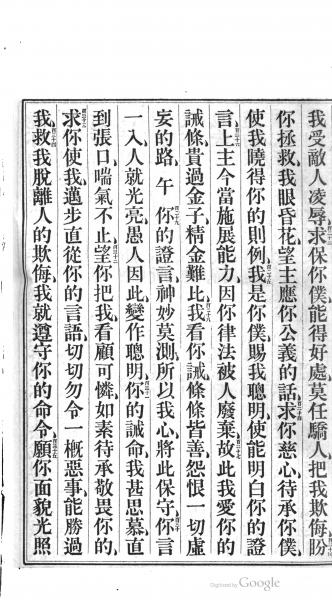 我受敵人凌辱求保你僕能得好處莫任驕人把我欺侮盼
你拯救我眼昏花望主應你公義的話求你慈心待承你僕
使我曉得你的則例我是你僕賜我聰明使能明白你的證
言上主今當施展能力因你律法被人廢棄故此我愛你的
誡條貴過金子精金難比我看你誡條條皆善怨恨一切虛
妄的路 午 你的證言神妙莫測所以我心將此保守你言
一入人就光亮愚人因此變作聰明你的誡命我甚思慕直
到張口喘氣不止望你把我看顧可憐如素待承敬畏你的
求你使我邁步直從你的言語切切勿令一概惡事能勝過
我救我脫離人的欺侮我就遵守你的命令願你面貌光照
Digitized by Google